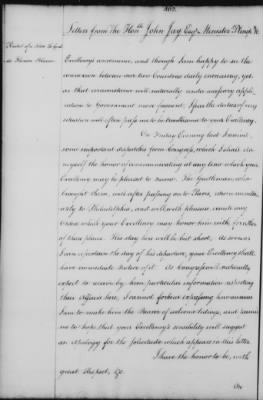 Letters from the Hon.ble John Jay Esq.r Minister Plenip.o &c
Excellency's convenience, and though I am happy to see the
connexion between our two Countries daily increasing, yet
as that circumstance will naturally render necessary appli-
cations to Government more frequent, I fear the duties of my
situation will often press me to be troublesome to your Excellency.
On Friday Evening last I received
some important dispatches from Congress, which I shall do
myself the honor of communicating at any time which your
Excellency may be pleased to name. The gentleman, who
brought them, will after passing on to Paris, return
to Philadelphia, and will with pleasure, execute any
Orders which your Excellency may honor him with for either
of those places. His stay here will be but short. As soon as
I can ascertain the day of his departure, your Excellency shall
have immediate Notice of it. As Congress will naturally
expect to receive by him particular information respecting
their Affairs here, I cannot forbear expressing how anxious
I am to make him the Bearer of welcome tidings, and permit
me to hope that your Excellency's sensibility will suggest
an apology for the solicitude which appears in this letter.
I have the honor to be, with
great Respect, &c.